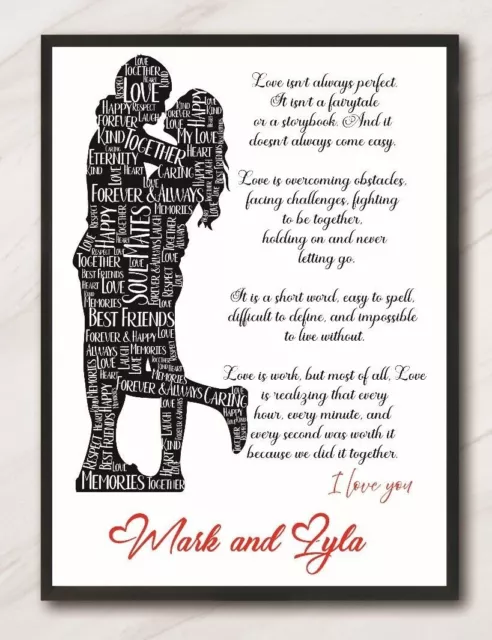 LOVE
TOGETHER
HEART
RESPECT
LOVE
KIND
HAPPY
HAPPY
RESPECT
LAUGH
FOREVER
KIND
FOREVER
KIND
CARING
TOGETHER
MY LOVE
HEART
ETERNITY
KIND
LOVE
HEART
CARING
FOREVER & ALWAYS
MEMORIES
RESPECT
TOGETHER
HAPPY
SOUL MATES
FOREVER & ALWAYS
LAUGH
LOVE
TOGETHER
BEST FRIENDS
HEART
LOVE
MEMORIES
TOGETHER
BEST FRIENDS
FOREVER & HAPPY
LOVE
ALWAYS
LOVE
MEMORIES
LOVE
LAUGH
TOGETHER
KIND
HEART
MEMORIES
FOREVER & ALWAYS
CARING
HAPPY
LOVE
MEMORIES
RESPECT
BEST FRIENDS
HAPPY
LAUGH
FOREVER & ALWAYS
TOGETHER
LOVE
HEART
MEMORIES
TOGETHER
Love isn't always perfect.
It isn't a fairytale
or a storybook. And it
doesn't always come easy.
Love is overcoming obstacles,
facing challenges, fighting
to be together,
holding on and never
letting go.
It is a short word, easy to spell,
difficult to define, and impossible
to live without.
Love is work, but most of all, Love
is realizing that every
hour, every minute, and
every second was worth it
because we did it together.
I love you
Mark and Lyla